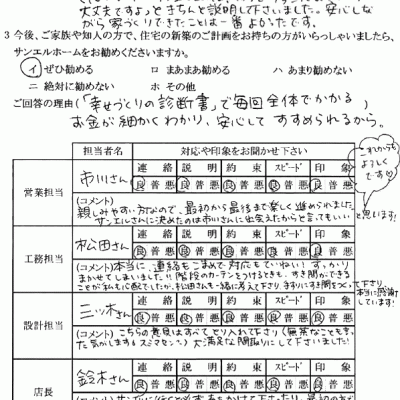 大丈夫ですよ」ときちんと説明して下さいました。安心しな
がら家づくりできたことは一番よかったです。
3 今後、ご家族や知人の方で、住宅の新築のご計画をお持ちの方がいらっしゃいましたら、
サンエルホームをお勧めくださいますか。
イ ぜひ勧める ロ まあまあ勧める ハ あまり勧めない
ニ 絶対に勧めない ホ その他
ご回答の理由(「幸せづくりの診断書」で毎回全体でかかる
お金が細かくわかり、安心して すすめられるから。)
担当者名 対応や印象をお聞かせ下さい
これからも
よろしく
です♡
営業担当 市川さん
連絡 説明 約束 スピード 印象
良普悪 良普悪 良普悪 良普悪 良普悪
(コメント)
親しみやすい方なので、最初から最後まで楽しく進められました
サンエルさんに決めたのは市川さんに出会えたからと言ってもいい
と思います!
工務担当 松田さん
連絡 説明 約束 スピード 印象
良普悪 良普悪 良普悪 良普悪 良普悪
(コメント)本当に、連絡もこまめで対応もていねい!すっかり
まかせてしまいました!!階段のカーテンをつけるときも、すき間ができる
ことが私も心配でしたが、松田さんも一緒に考えて下さり
本当に感謝
しています!
設計担当 三ツ木さん
連絡 説明 約束 スピード 印象
良普悪 良普悪 良普悪 良普悪 良普悪
(コメント)こちらの意見はすべてとり入れて下さり(無茶なことも言っ
た気がします スミマセン)大満足な間取りにして下さいました!
店長 鈴木さん
連絡 説明 約束 スピード 印象
良普悪 良普悪 良普悪 良普悪 良普悪